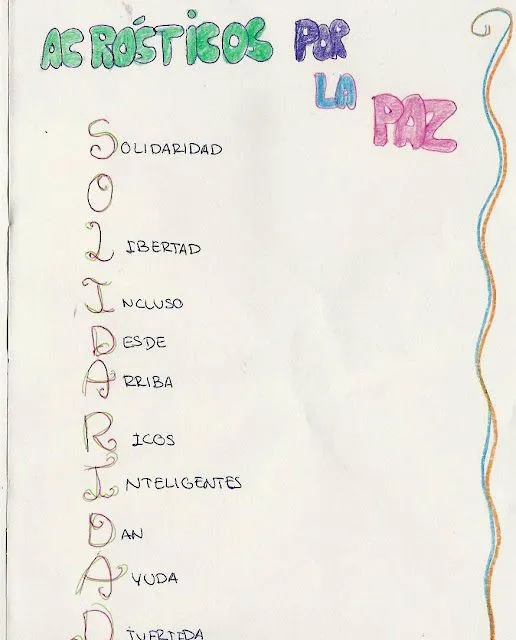 ACRÓSTICOS POR
LA
PAZ
SOLIDARIDAD
O
LIBERTAD
INCLUSO
DESDE
ARRIBA
RICOS
INTELIGENTES
DAN
AYUDA
DIVERTIDA